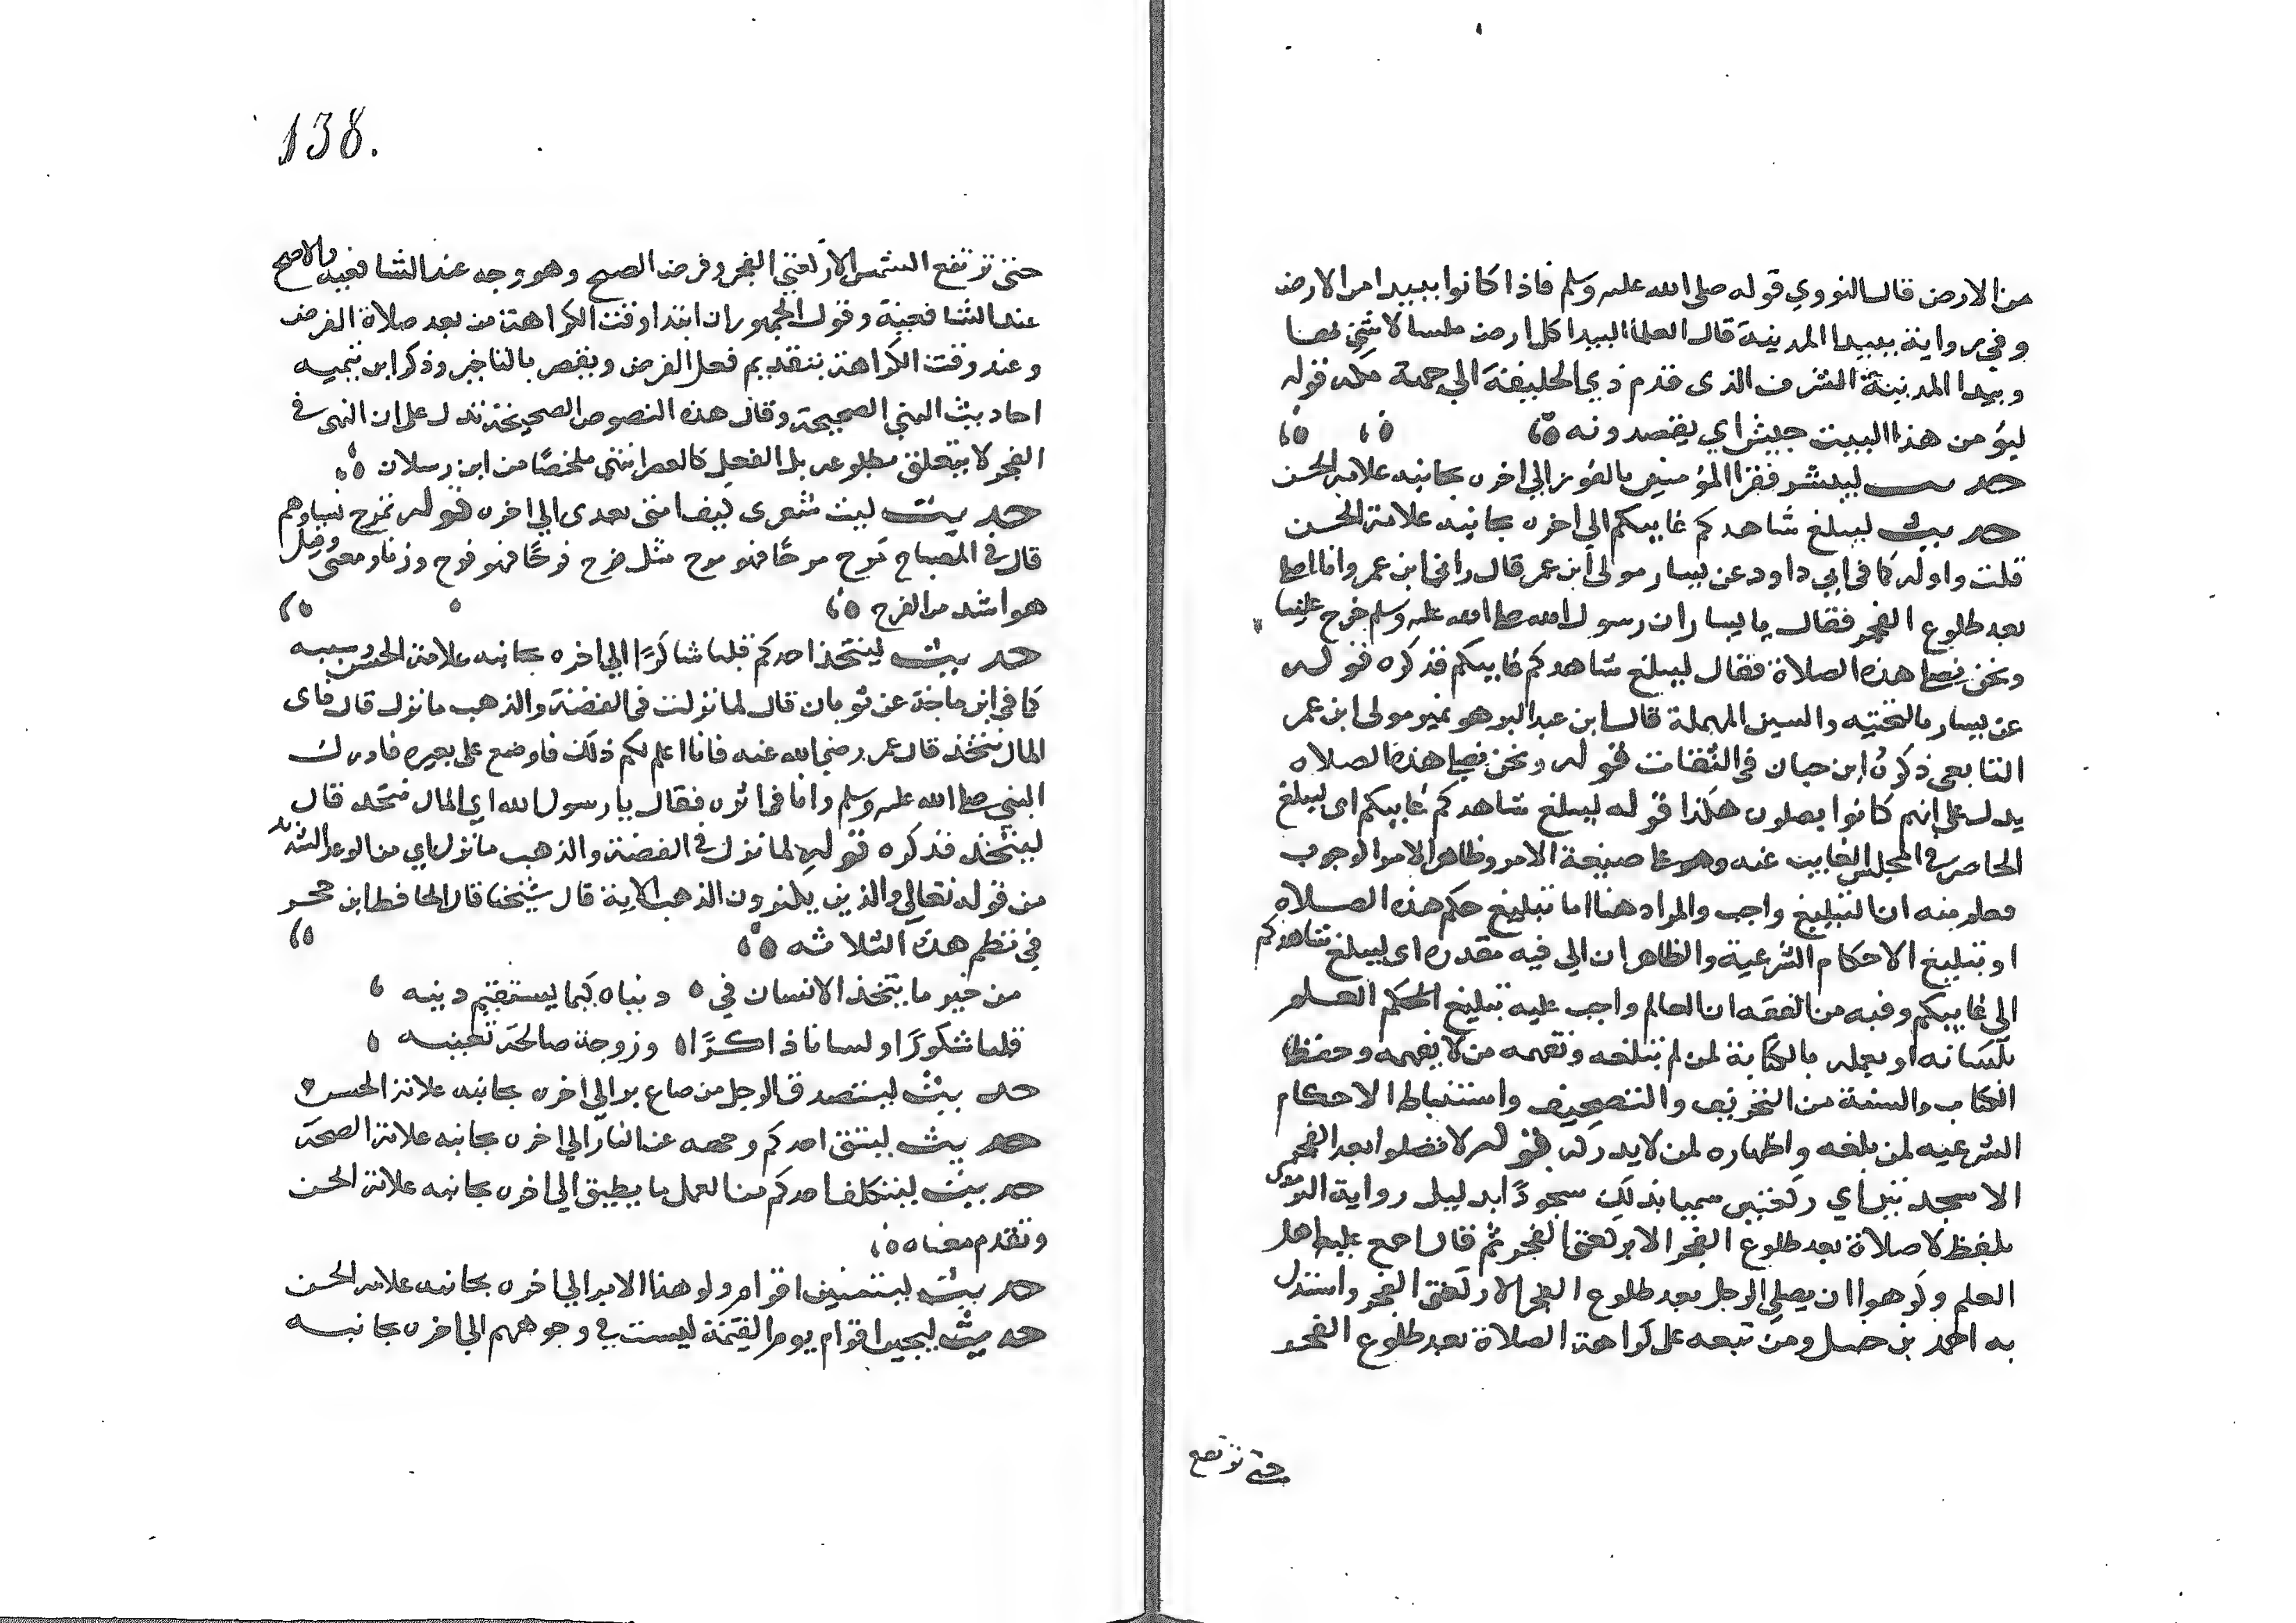 من الارض قال النووي قوله صلى الله عليه وسلم فاذا كانوا ببيدا من الارض
وفي رواية ببيدا المدينة قال العلما البيدا كل ارض ملسا لا شي بها
وبيدا المدينة الشرف الذي قدم ذي الحليفة الي جهة مكة قوله
ليؤمن هذا البيت جيش اي يقصدونه
حديث ليبشر فقرا المؤمنين بالفوز الي اخره بجانبه علامة الحسن
حديث ليبلغ شاهدكم غايبكم الي اخره بجانبه علامة الحسن
قلت واوله كما في ابي داود عن يسار مولى ابن عمر قال راني ابن عمر وانا اصلي
بعد طلوع الفجر فقال يا يسار ان رسول الله صلى الله عليه وسلم خرج علينا
ونحن نصلي هذه الصلاة فقال ليبلغ شاهدكم غايبكم فذكره قوله
عن يسار بالتحتيه والسين المهملة قال ابن عبد البر هو نمير مولى ابن عمر
التابعي ذكره ابن حبان في الثقات قوله ونحن نصلي هذه الصلاه
يدل على انهم كانوا يصلون هكذا قوله ليبلغ شاهدكم غايبكم اي ليبلغ
الحاضر في المجلس الغايب عنه وهو على صيغة الامر وظاهر الامر الوجوب
فعلم منه ان التبليغ واجب والمراد هنا اما تبليغ حكم هذه الصلاة
او تبليغ الاحكام الشرعية والظاهر ان الى فيه مقدره اى ليبلغ شاهدكم
الى غايبكم وفيه من الفقه ان العالم واجب عليه تبليغ الحكم العلم
بلسانه او بعلمه بالكتابة لمن لم تبلغه وتفهمه من لا يفهمه وحفظ
الكتاب والسنة من التحريف والتصحيف واستنباط الاحكام
الشرعيه لمن بلغه واظهاره لمن لا يدركه قوله لا تصلوا بعد الفجر
الا سجدتين اي ركعتين سميا بذلك سجودا بدليل رواية الترمذي
بلفظ لا صلاة بعد طلوع الفجر الا ركعتي الفجر ثم قال اجمع عليه اهل
العلم وكرهوا ان يصلي الرجل بعد طلوع الفجر الا ركعتي الفجر واستدل
به احمد بن حنبل ومن تبعه على كراهة الصلاة بعد طلوع الفجر
حتى ترتفع
138.
حتى ترتفع الشمس الا ركعتي الفجر وفرض الصبح وهو وجه عند الشافعيه والاصح
عند الشافعية وقول الجمهور ان ابتدا وقت الكراهة من بعد صلاة الفرض
وعند وقت الكراهة بتقديم فعل الفرض ويقصر بالتاخير وذكر ابن تيميه
احاديث النهي الصحيحة وقال هذه النصوص الصحيحة تدل على ان النهى في
الفجر لا يتعلق بطلوعه بل بالفعل كالعصر انتهى ملخصا من ابن رسلان
حديث ليت شعرى كيف امتي بعدى الي اخره قوله تمرح نساوهم
قال في المصباح مرح مرحا فهو مرح مثل فرح فرحا فهو فرح وزنا ومعنى وقيل
هو اشد من الفرح
حديث ليتخذ احدكم قلبا شاكرا الي اخره بجانبه علامة الحسن وسببه
كما في ابن ماجة عن ثوبان قال لما نزلت في الفضة والذهب ما نزل قال فاى
المال نتخذ قال عمر رضي الله عنه فانا اعلم لكم ذلك فاوضع على بعيره فادرك
النبي صلى الله عليه وسلم وانا في اثره فقال يا رسول الله اي المال نتخذ قال
ليتخذ فذكره قوله لما نزل في الفضة والذهب ما نزل اي من الوعيد الشديد
من قوله تعالى والذين يكنزون الذهب الاية قال شيخنا قال الحافظ ابن حجر
في نظم هذه الثلاثه
من خير ما يتخذ الانسان في دنياه كيما يستقيم دينه
قلبا شكورا ولسانا ذاكرا وزوجة صالحة تعينه
حديث ليتصدق الرجل من صاع بره الي اخره بجانبه علامة الحسن
حديث ليتق احدكم وجهه عن النار الي اخره بجانبه علامة الصحة
حديث ليتكلف احدكم من العمل ما يطيق الي اخره بجانبه علامة الحسن
وتقدم معناه
حديث ليتمنين اقوام ولوا هذا الامر الي اخره بجانبه علامة الحسن
حديث ليجين اقوام يوم القيمة ليست في وجوههم الي اخره بجانبه